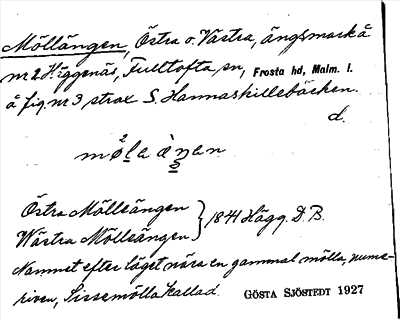 Möllängen, Östra o. Västra, ängsmark å
nr 2 Häggenäs, Fulltofta sn, Frosta hd, Malm. l.
å fig. nr 3 strax S. Hannaskillebäcken.
d.
Östra Möllsängen
Wästra Möllsängen } 1841 Hägg. D.B.
Namnet efter läget nära en gammal mölla, nume-
riven, Sissemölla kallad. GÖSTA SJÖSTEDT 1927